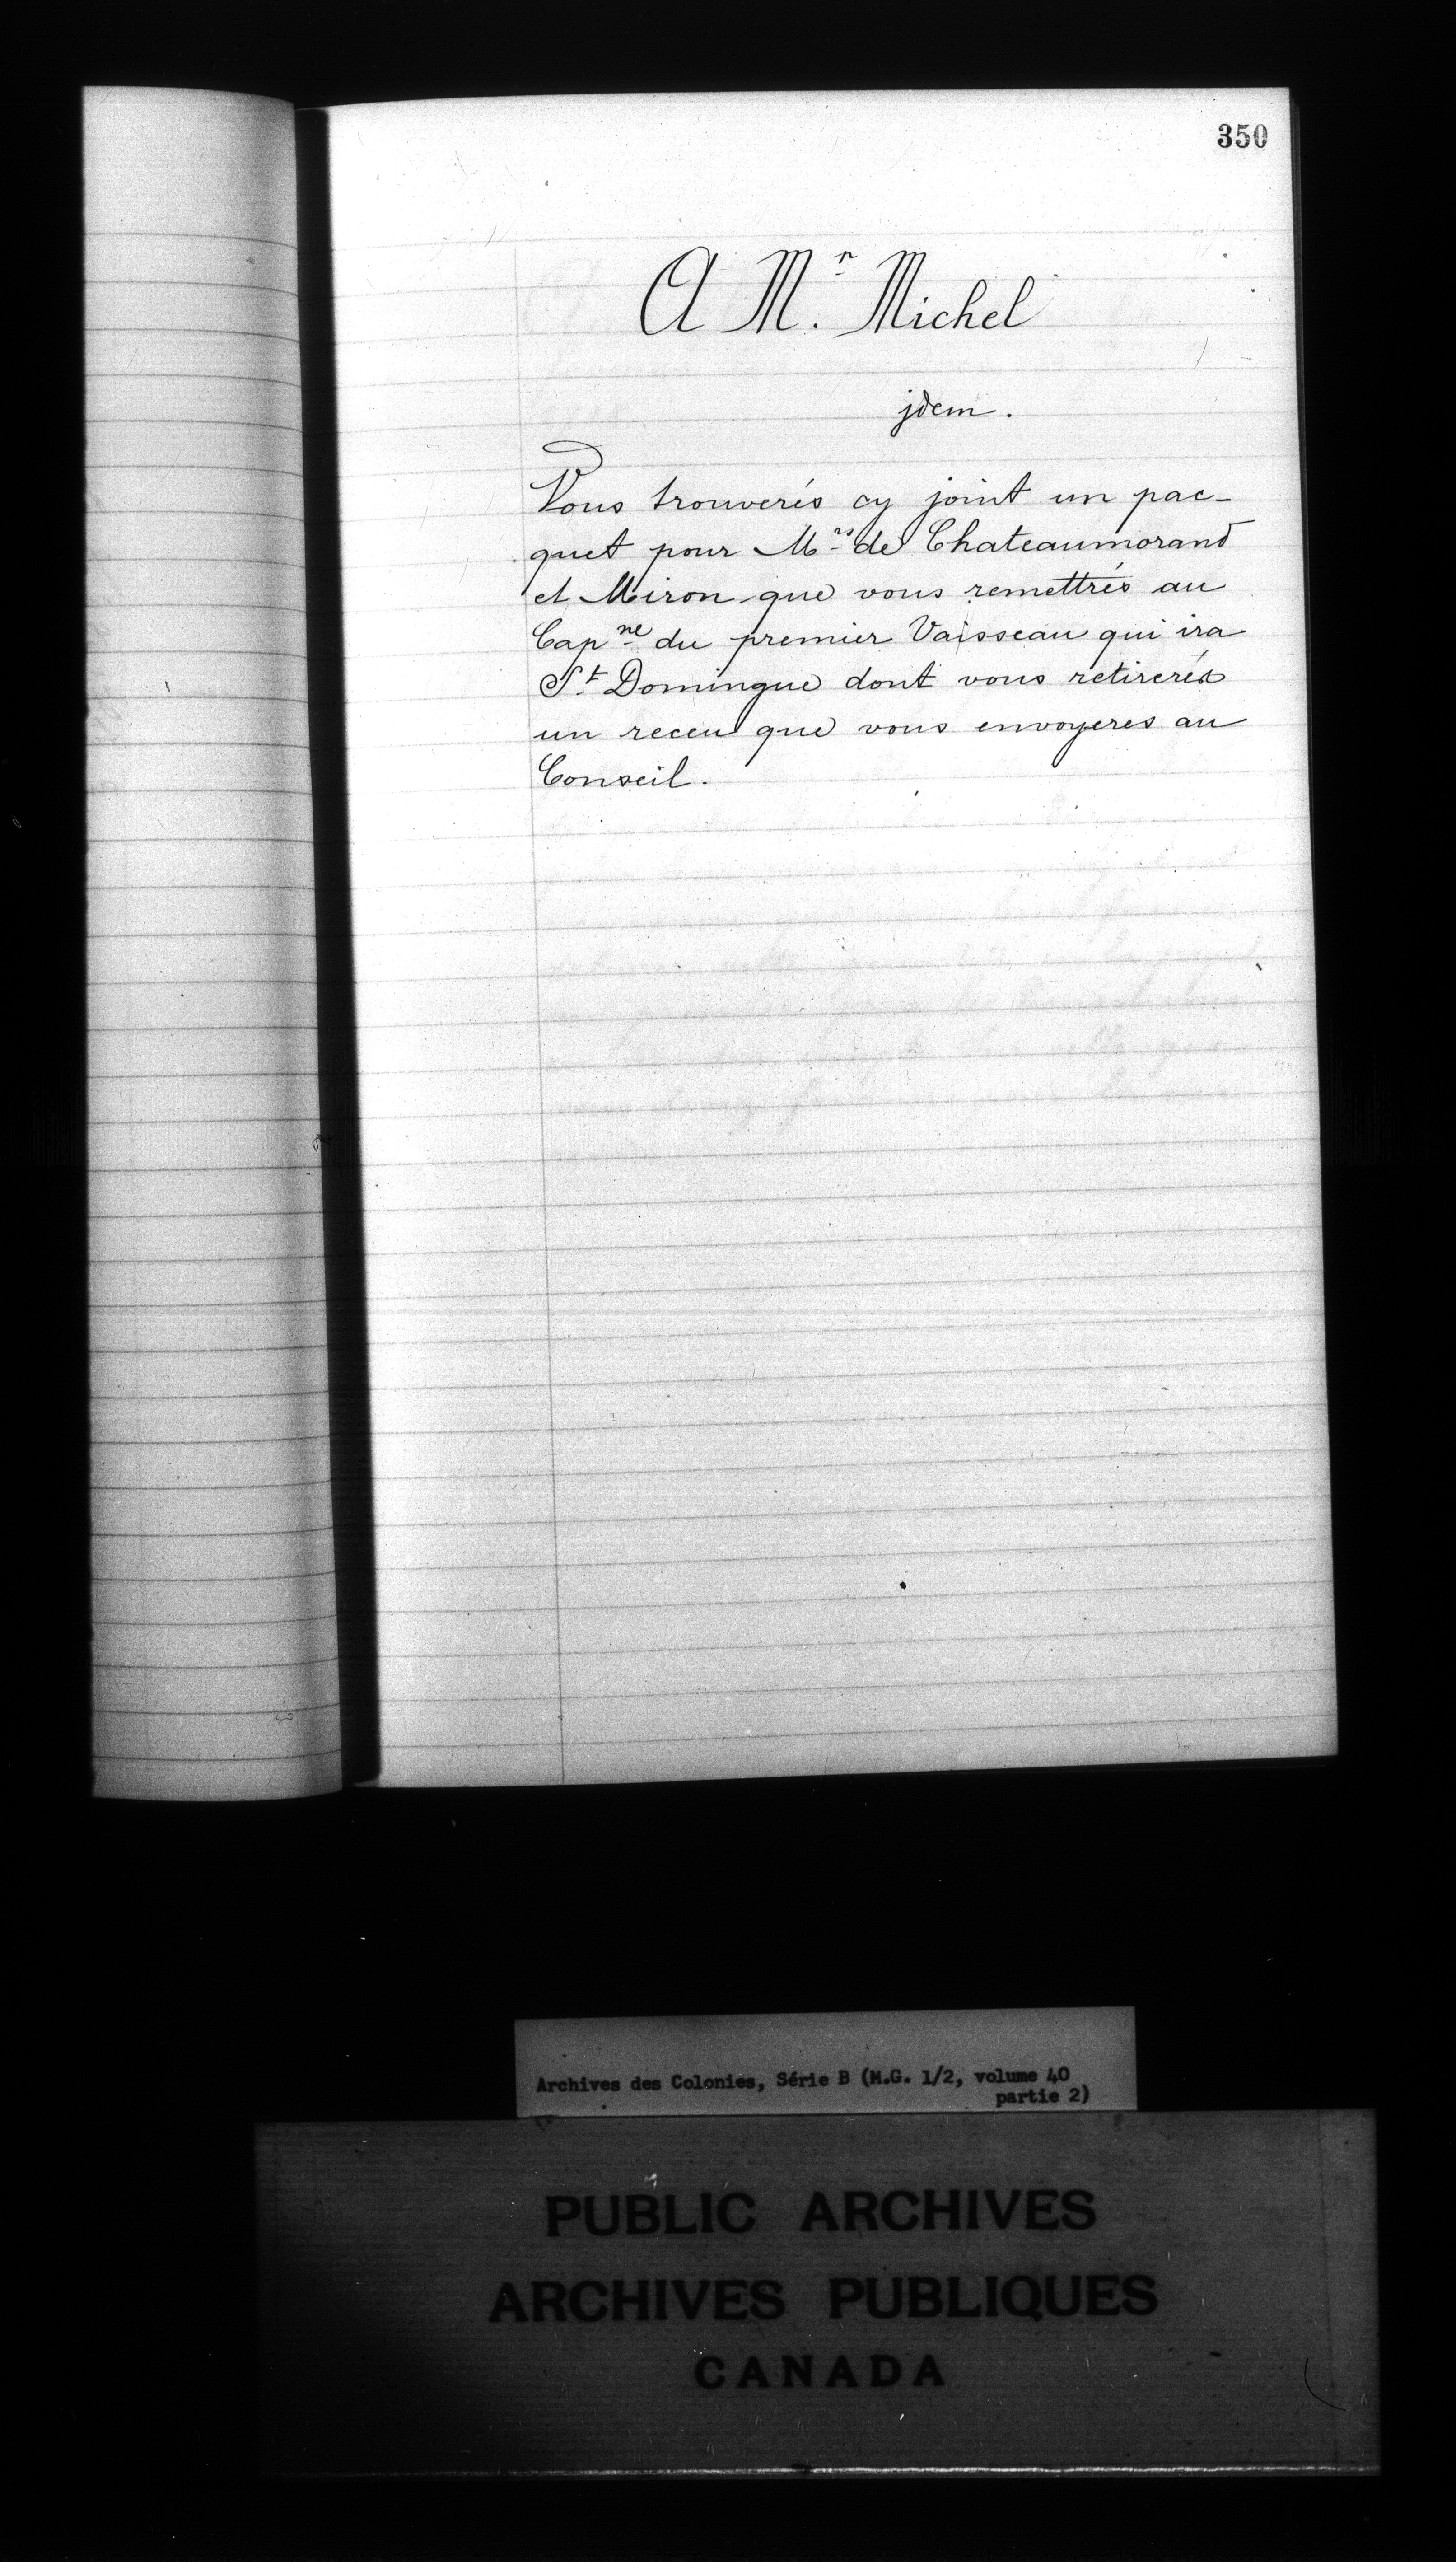 350
A M.r Michel
jdem.
Vous trouverés cy joint un pac-
quet pour M.rs de Chateaumorand
et Miron que vous remettrés au
Cap.ne du premier Vaisseau qui ira
S.t Domingue dont vous retirerés
un receu que vous envoyeres au
Conseil.
Archives des Colonies, Série B (M.G. 1/2, volume 40
partie 2)
PUBLIC ARCHIVES
ARCHIVES PUBLIQUES
CANADA